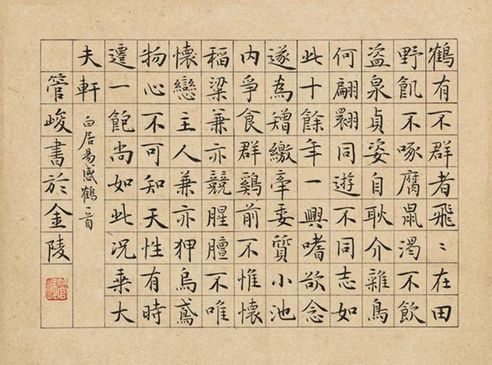 鶴有不群者飛〻在田
野飢不啄腐鼠渴不飲
盗泉貞姿自耿介雜鳥
何翩翾同遊不同志如
此十餘年一興嗜欲念
遂為矰繳牽委質小池
內爭食群鷄前不惟懷
稻粱兼亦競腥膻不唯
懷戀主人兼亦狎烏鳶
物心不可知天性有時
遷一飽尚如此況乘大
夫軒 白居易感鶴一首
管峻書於金陵